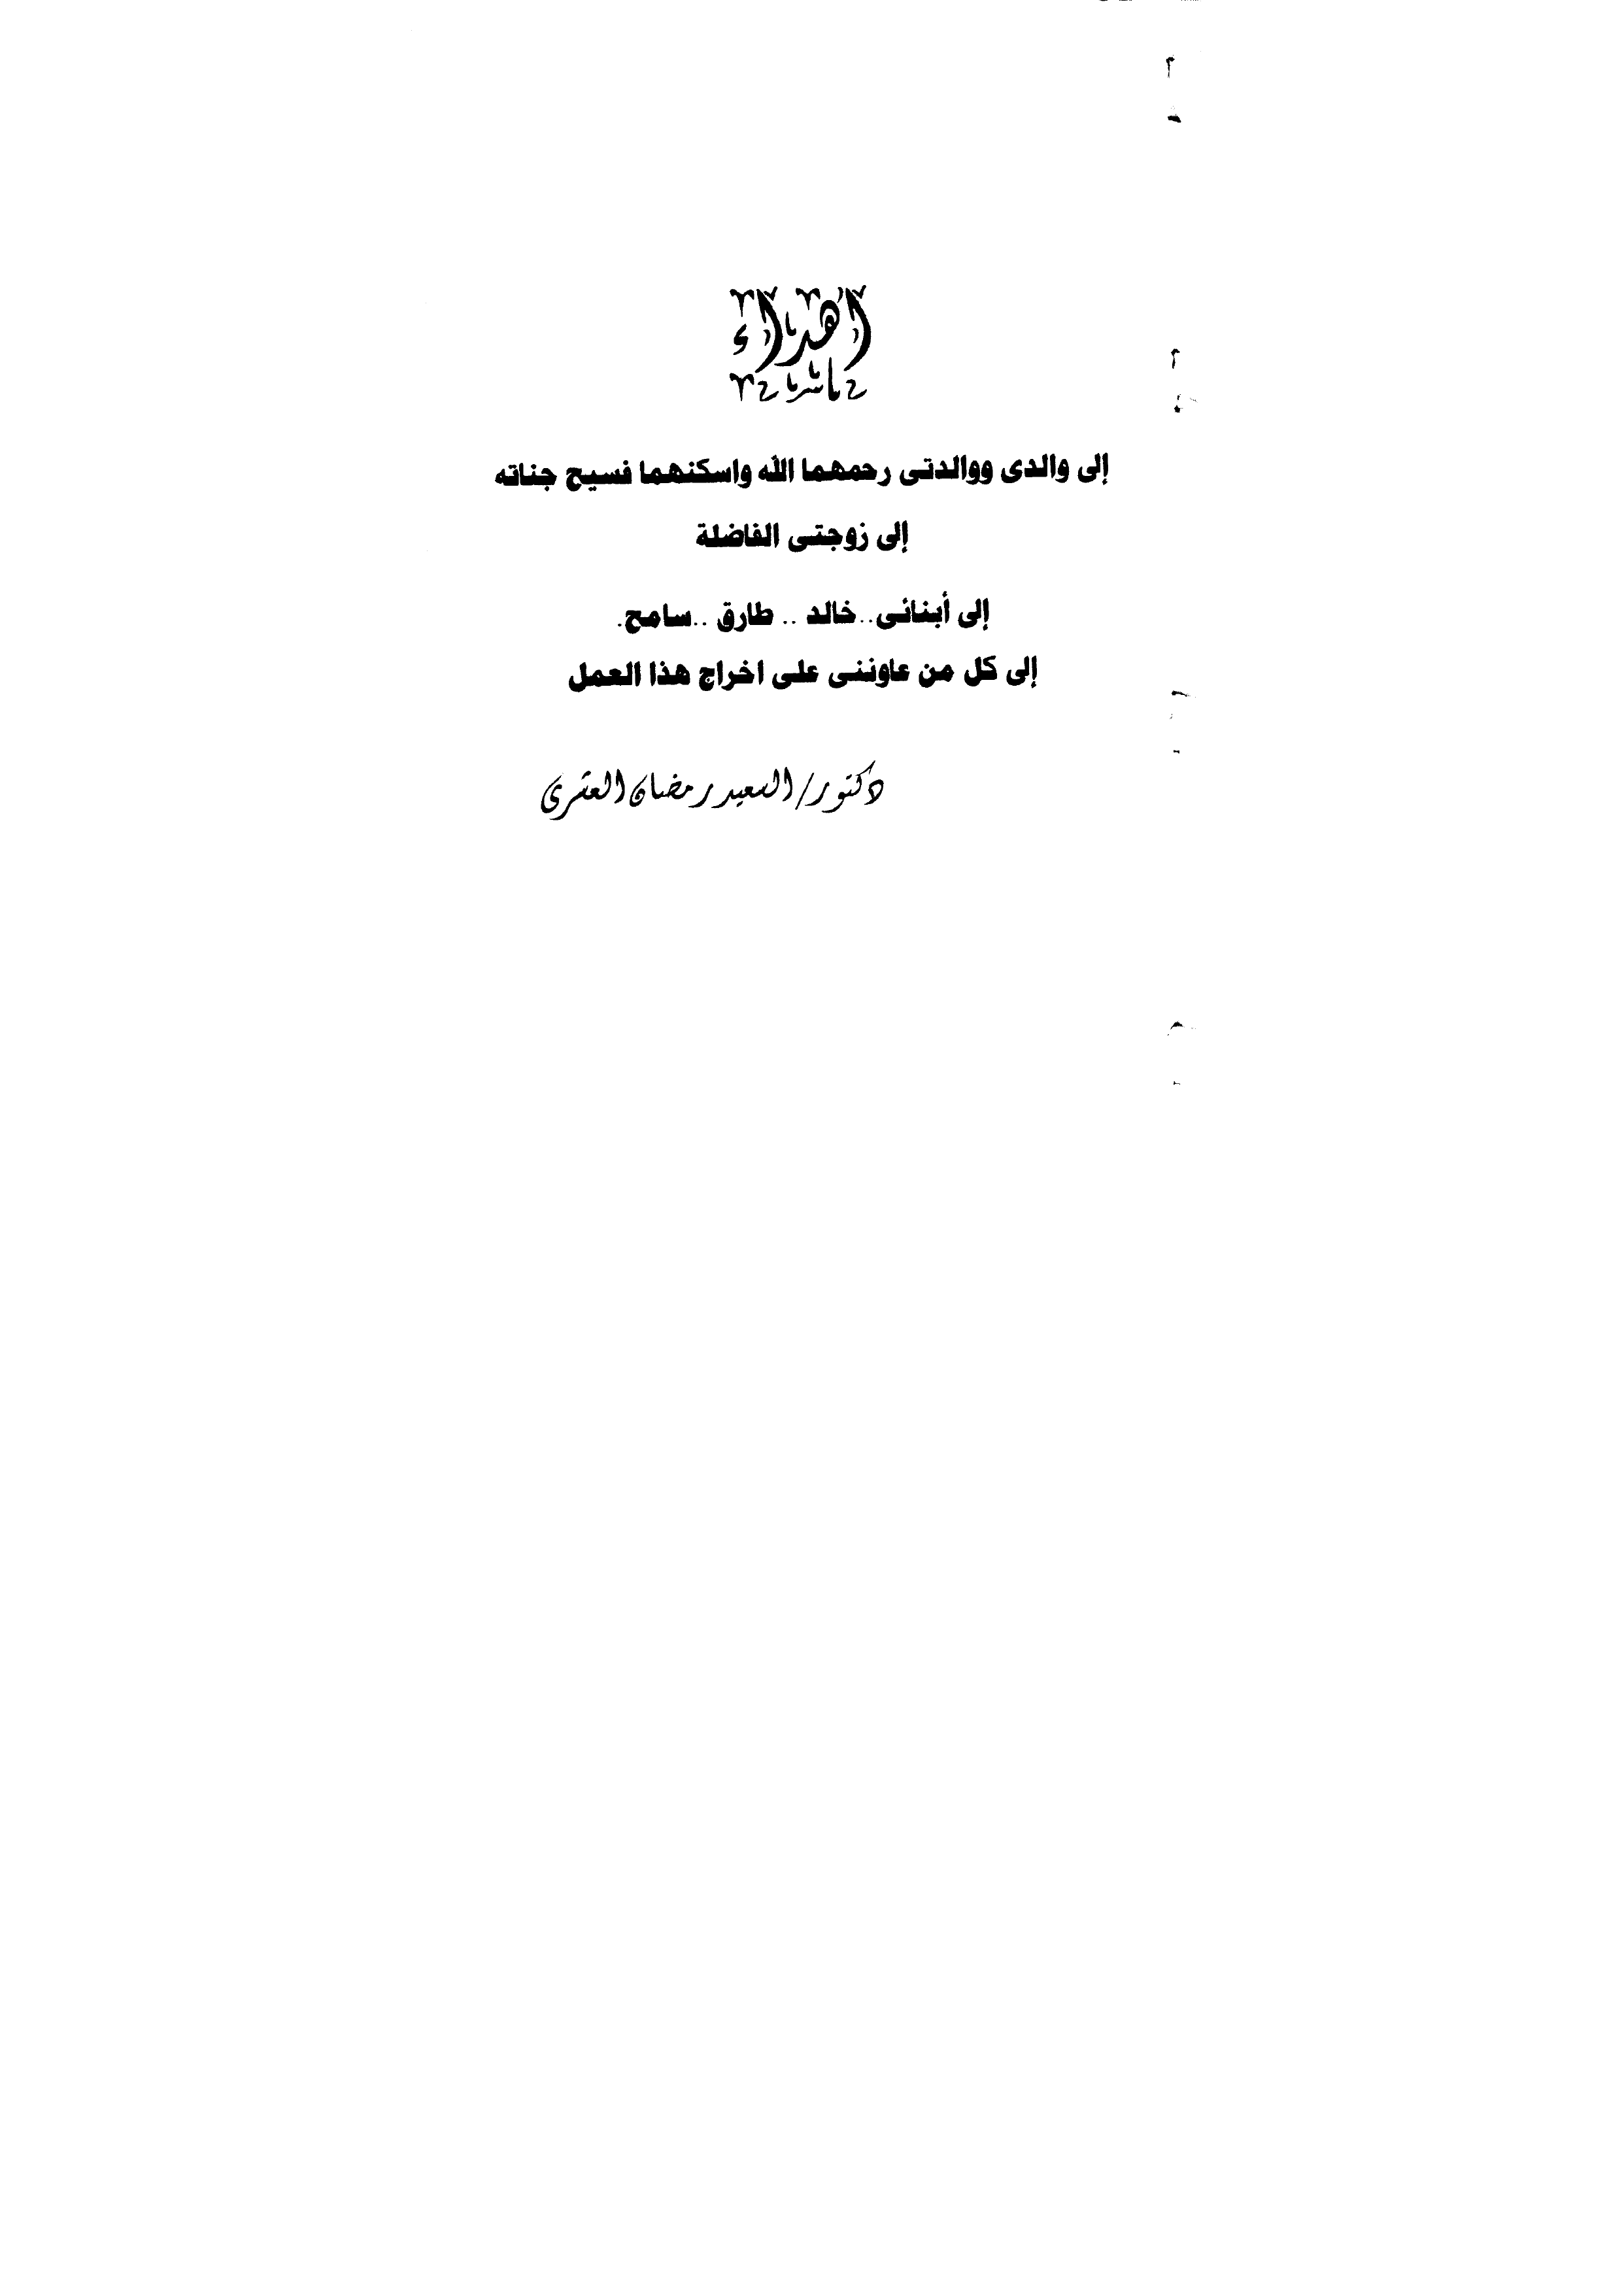 اهداء
إلى والدى ووالدتى رحمهما الله واسكنهما فسيح جناته
إلى زوجتى الفاضلة
إلى أبنائى..خالد .. طارق ..سامح.
إلى كل من عاوننى على اخراج هذا العمل
دكتور/السعيد رمضان العشرى